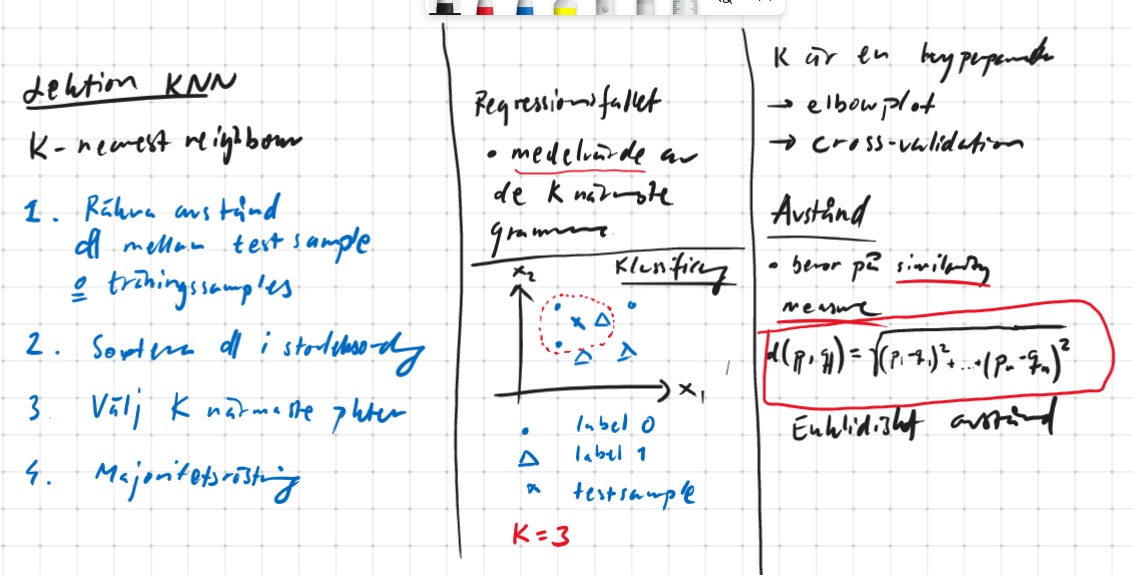 Lektion KNN
K-nearest neighbour
1. Räkna avstånd
d mellan testsample
o träningssamples
2. Sortera d i storleksordning
3 Välj K närmaste pkter
4. Majoritetsröstning
Regressionsfallet
• medelvärde av
de K närmste
grannarne
Klassificering
x₂
x₁
• label 0
△ label 1
x testsample
K = 3
K är en hyperparameter
→ elbowplot
→ cross-validation
Avstånd
• beror på similarity
measure
d(p, q) = √(p₁-q₁)² + ... + (pₙ-qₙ)²
Euklidiskt avstånd